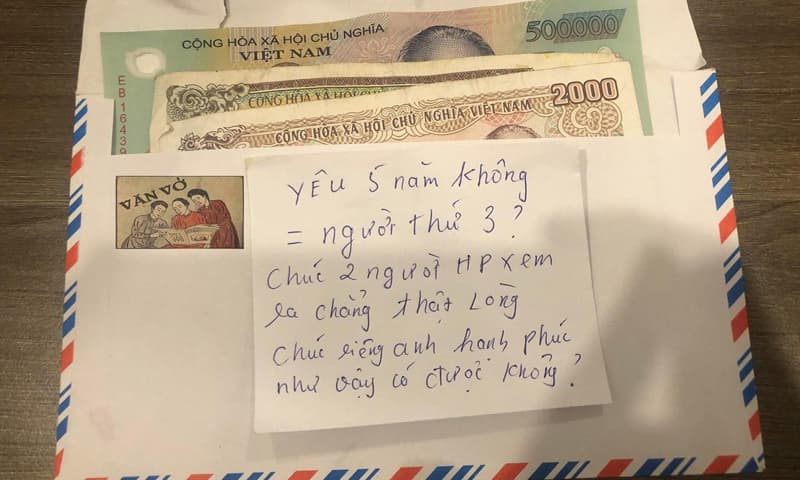 CỘNG HÒA XÃ HỘI CHỦ NGHĨA
VIỆT NAM
500000
EB 16439
CỘNG HÒA XÃ HỘI CHỦ
2000
CỘNG HÒA XÃ HỘI CHỦ NGHĨA VIỆT NAM
VĂN VỞ
YÊU 5 năm không
= người thứ 3?
Chúc 2 người HP xem
ra chẳng thật Lòng
Chúc riêng anh hạnh phúc
như vậy có được không?